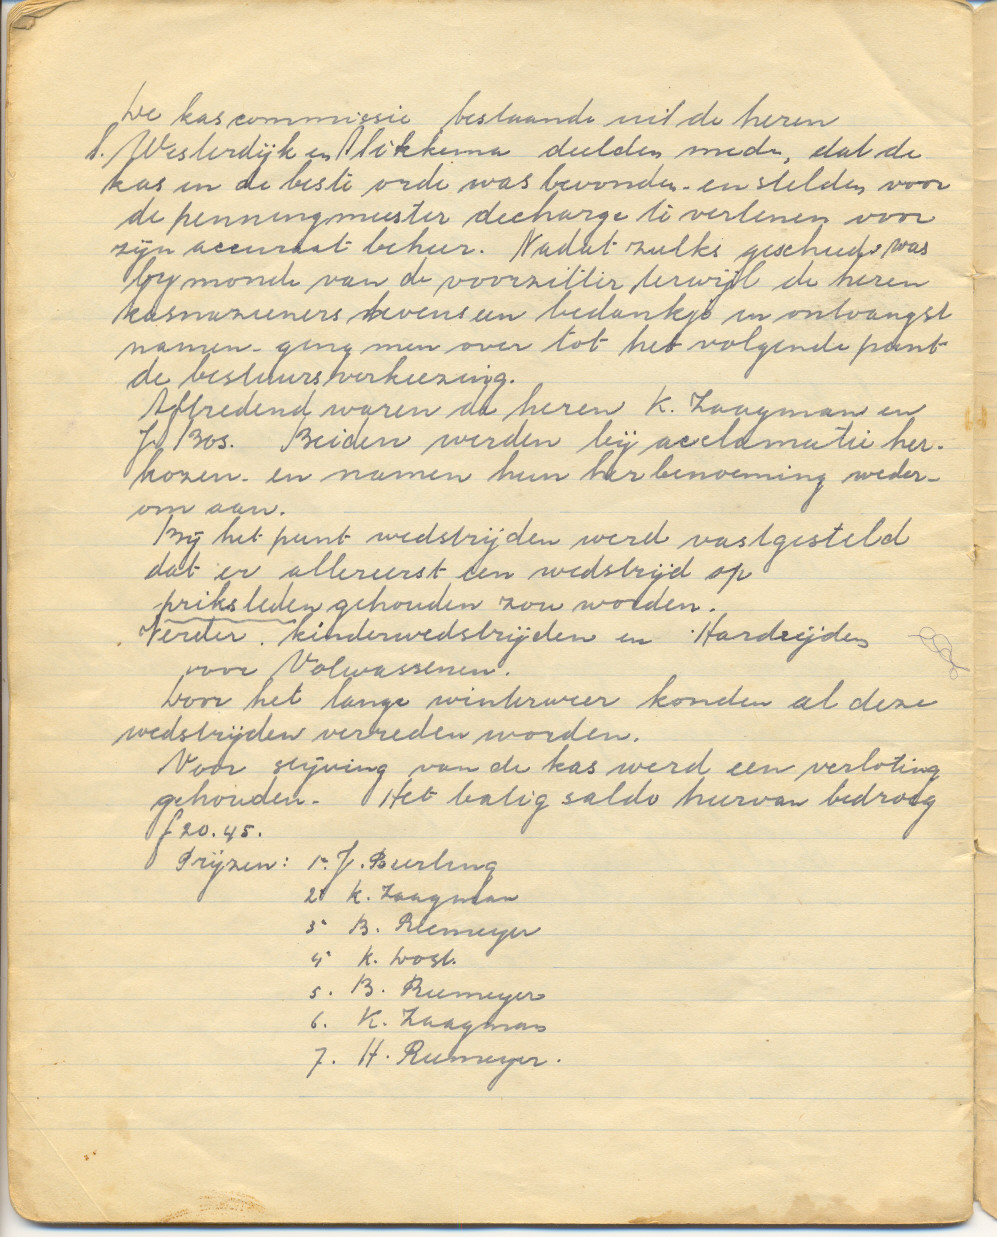 De kascommissie bestaande uit de heren
S. Westerdijk en Flikkema deelden mede, dat de
kas in de beste orde was bevonden - en stelden voor
de penningmeester decharge te verlenen voor
zijn accuraat beheer. Nadat zulks geschied was
bij monde van de voorzitter terwijl de heren
kasnazieners tevens een bedankje in ontvangst
namen - ging men over tot het volgende punt
de bestuursverkiezing.
Aftredend waren de heren K. Zaagman en
J. Bos. Beiden werden bij acclamatie her-
kozen - en namen hun herbenoeming weder-
om aan.
Bij het punt wedstrijden werd vastgesteld
dat er allereerst een wedstrijd op
priksleden gehouden zou worden.
Verder kinderwedstrijden en Hardrijden
voor Volwassenen.
Door het lange winterweer konden al deze
wedstrijden verreden worden.
Voor stijving van de kas werd een verloting
gehouden - Het batig saldo hiervan bedroeg
f 20.45.
Prijzen: 1e J. Beerling
2e K. Zaagman
3e B. Riemeyer
4e K. Dost.
5. B. Riemeyer
6. K. Zaagman
7. H. Riemeyer.